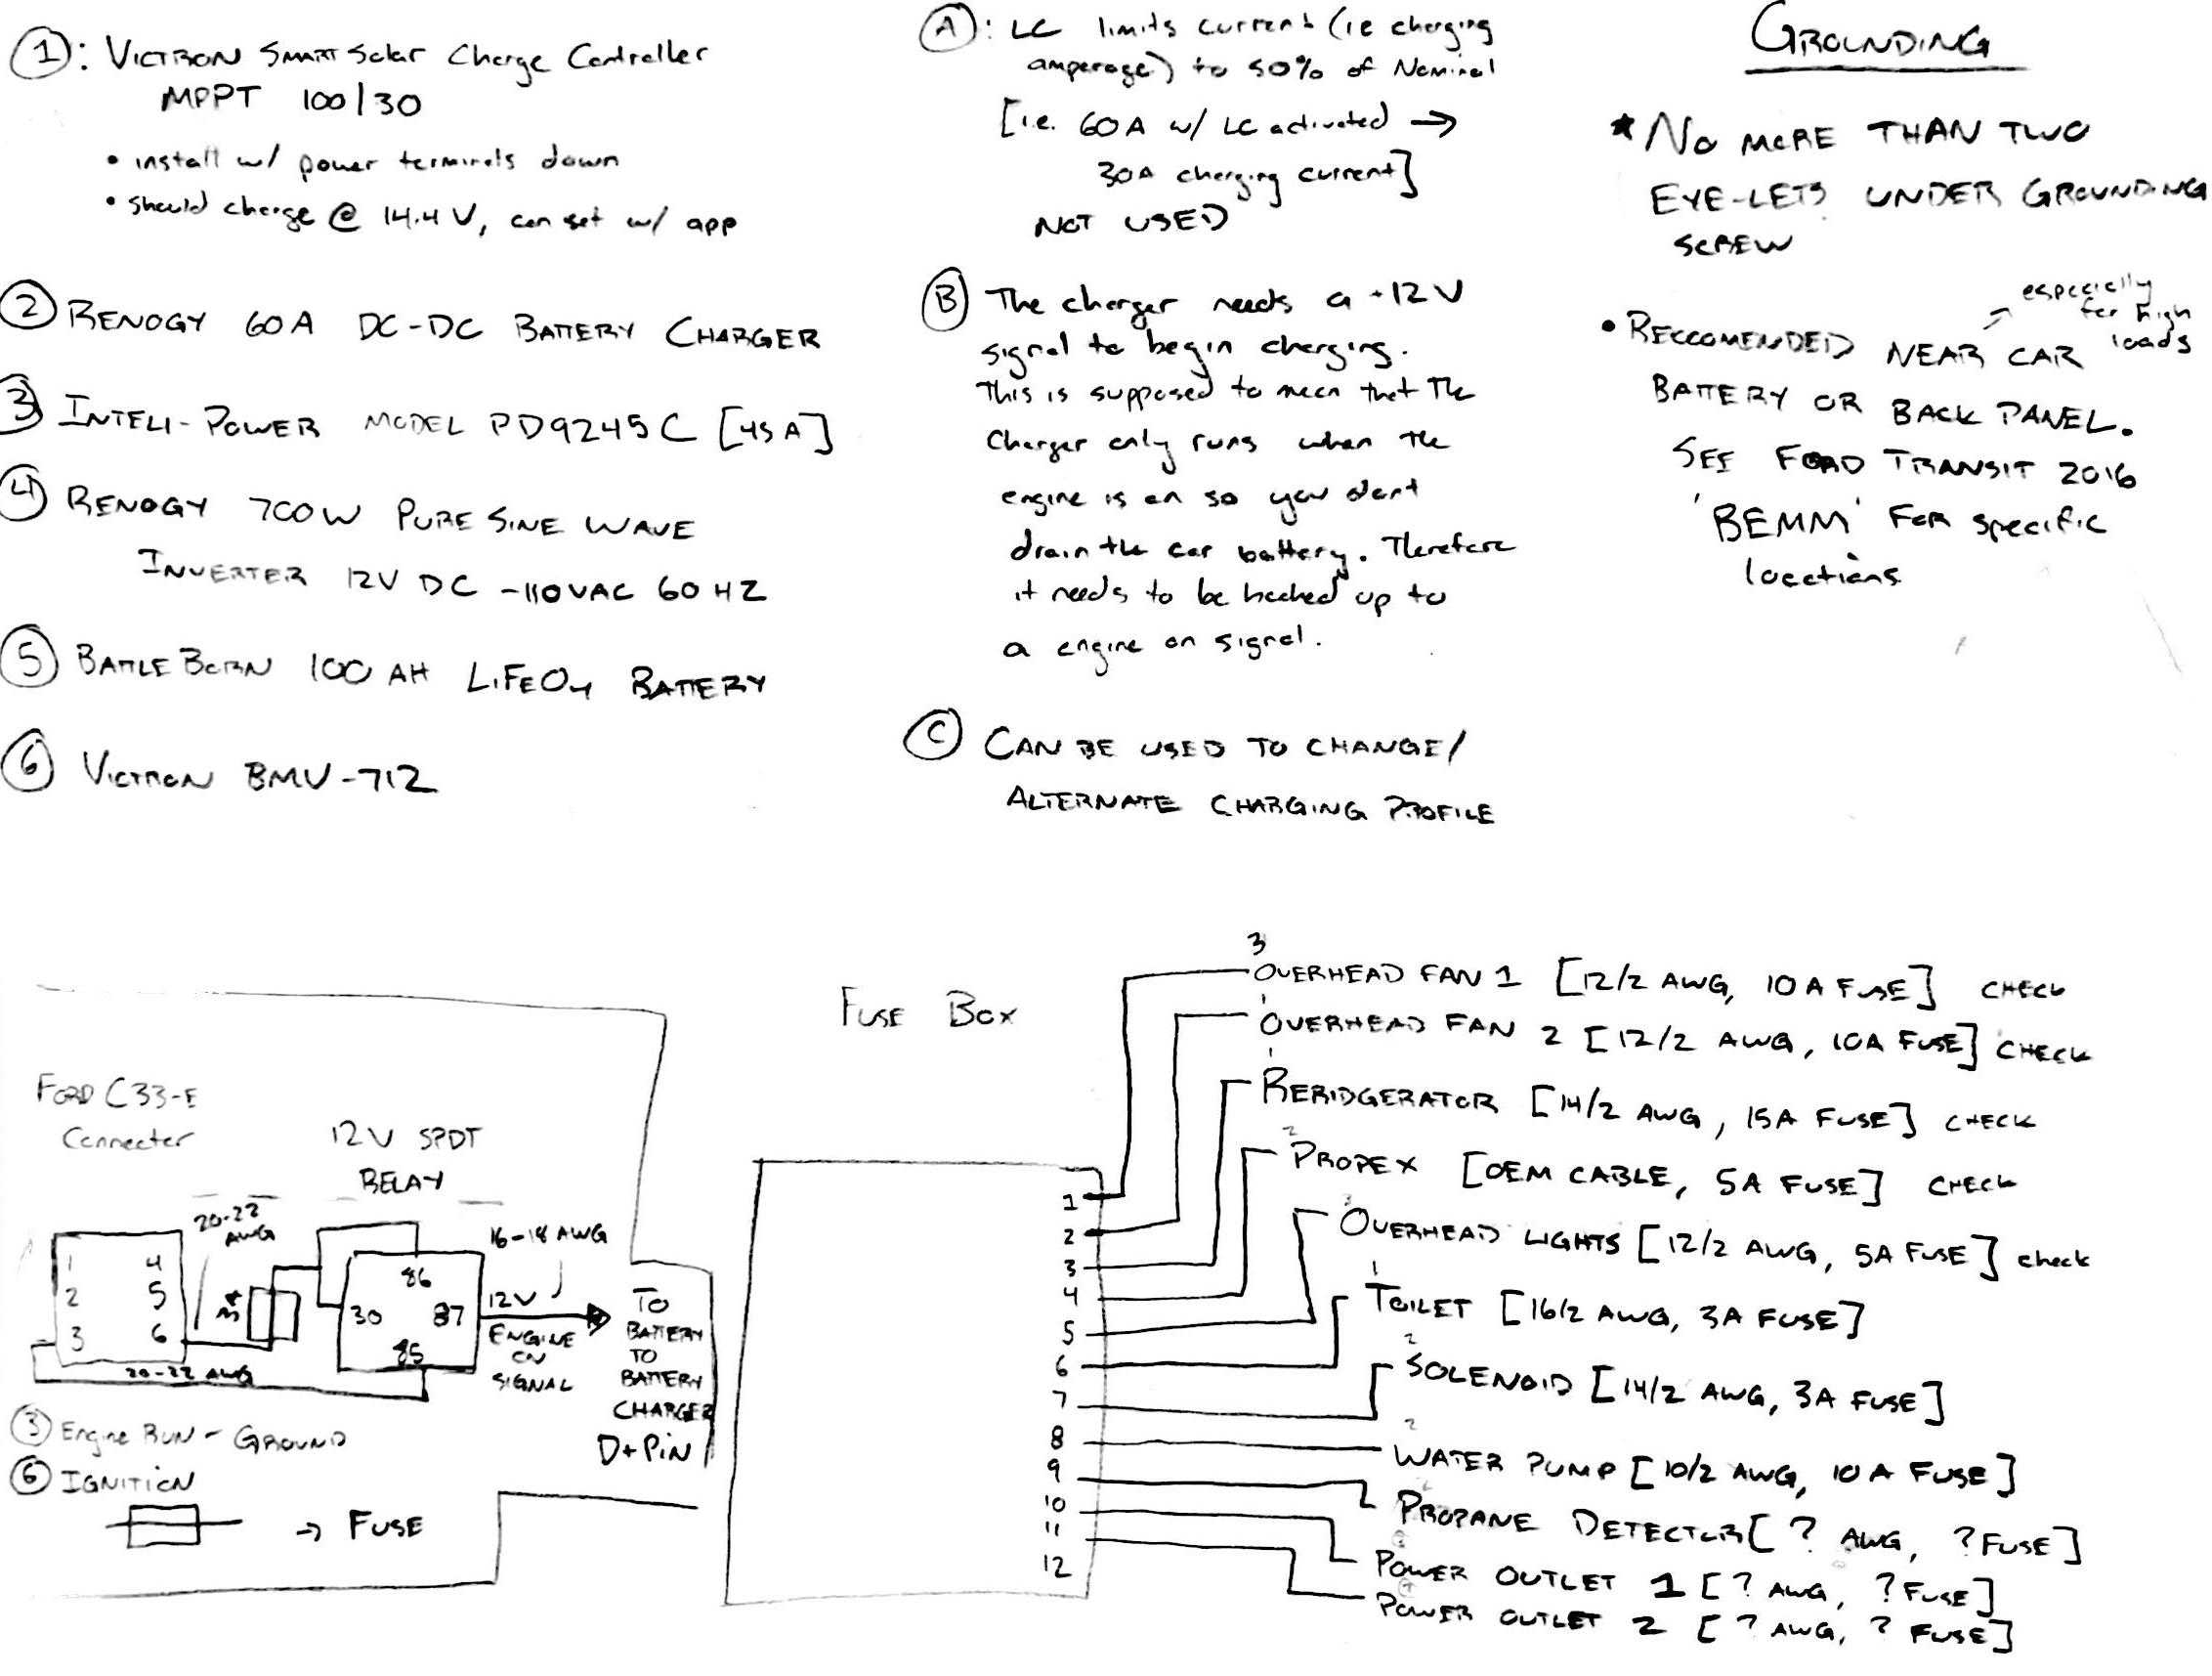 ①: VICTRON SMARTSolar Charge Controller
MPPT 100/30
• install w/ power terminals down
• should charge @ 14.4 V, can set w/ app
② RENOGY 60A DC-DC BATTERY CHARGER
③ INTELI-POWER MODEL PD9245C [45A]
④ RENOGY 700W PURE SINE WAVE
INVERTER 12V DC -110VAC 60 HZ
⑤ BATTLE BORN 100 AH LiFeO4 BATTERY
⑥ VICTRON BMV-712
Ⓐ: LC limits current (ie charging
amperage) to 50% of Nominal
[i.e. 60A w/ LC activated →
30A charging current]
NOT USED
Ⓑ The charger needs a +12V
signal to begin charging.
This is supposed to mean that the
charger only runs when the
engine is on so you dont
drain the car battery. Therefore
it needs to be hooked up to
a engine on signal.
Ⓒ CAN BE USED TO CHANGE/
ALTERNATE CHARGING PROFILE
GROUNDING
* No MORE THAN TWO
EYE-LETS UNDER GROUNDING
SCREW
especially
for high
loads
• RECCOMENDED NEAR CAR
BATTERY OR BACK PANEL.
SEE FORD TRANSIT 2016
'BEMM' FOR specific
locations
FORD C33-E
Connector
12V SPDT
RELAY
20-22
AWG
16-18 AWG
1 4
2 5
3 6
3A
86
30 87
85
12V
ENGINE
ON
SIGNAL
20-22 AWG
TO
BATTERY
TO
BATTERY
CHARGER
D+ PIN
③ Engine RUN - GROUND
⑥ IGNITION
→ FUSE
FUSE BOX
1
2
3
4
5
6
7
8
9
10
11
12
3
OVERHEAD FAN 1 [12/2 AWG, 10 A FUSE] CHECK
1
OVERHEAD FAN 2 [12/2 AWG, 10A FUSE] CHECK
1
RERIDGERATOR [14/2 AWG, 15A FUSE] CHECK
2
PROPEX [OEM CABLE, 5A FUSE] CHECK
3
OVERHEAD LIGHTS [12/2 AWG, 5A FUSE] check
1
TOILET [16/2 AWG, 3A FUSE]
2
SOLENOID [14/2 AWG, 3A FUSE]
2
WATER PUMP [10/2 AWG, 10 A FUSE]
PROPANE DETECTOR [? AWG, ? FUSE]
POWER OUTLET 1 [? AWG, ? FUSE]
POWER OUTLET 2 [? AWG, ? FUSE]